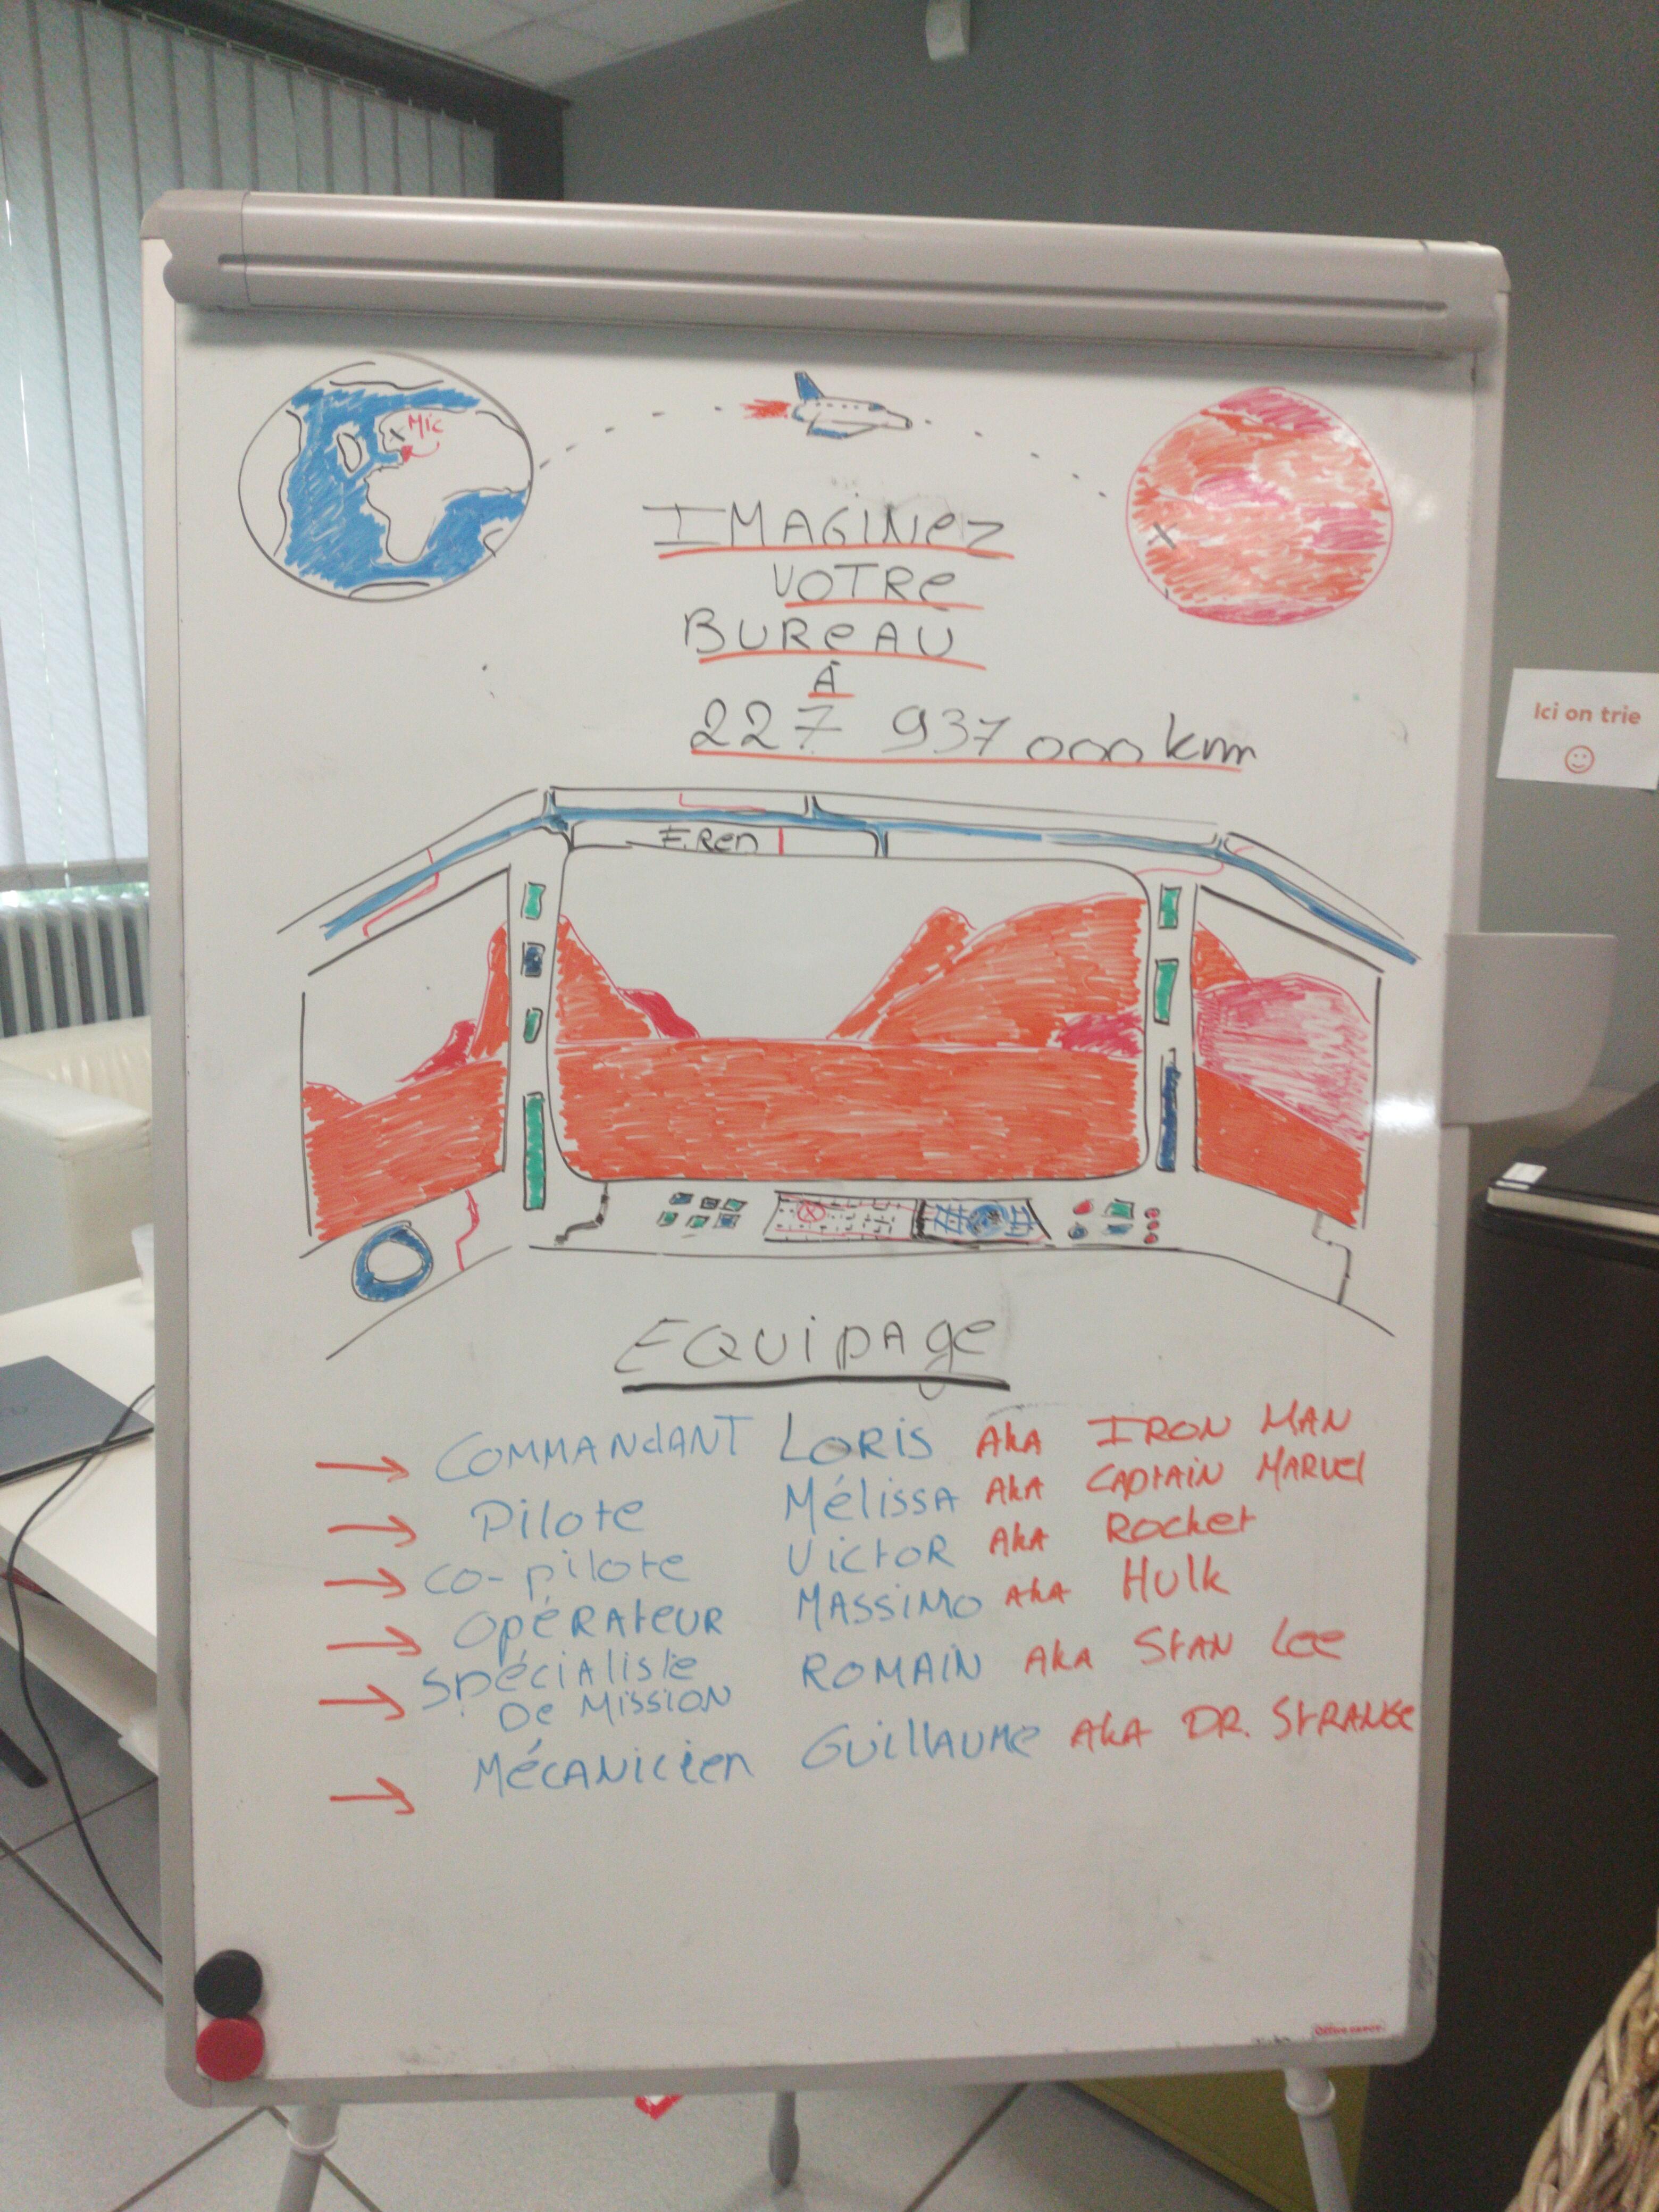 Mic
IMAGINEZ
VOTRE
BUREAU
À
227 937 000 km
E.Ren
Ici on trie
EQUIPAGE
COMMANDANT LORIS AKA IRON MAN
Pilote Mélissa AKA CAPTAIN MARVEL
co-pilote Victor AKA Rocket
OPÉRATEUR MASSIMO AKA Hulk
SPÉCIALISTE DE MISSION ROMAIN AKA STAN LEE
MÉCANICIEN GUILLAUME AKA DR. STRANGE